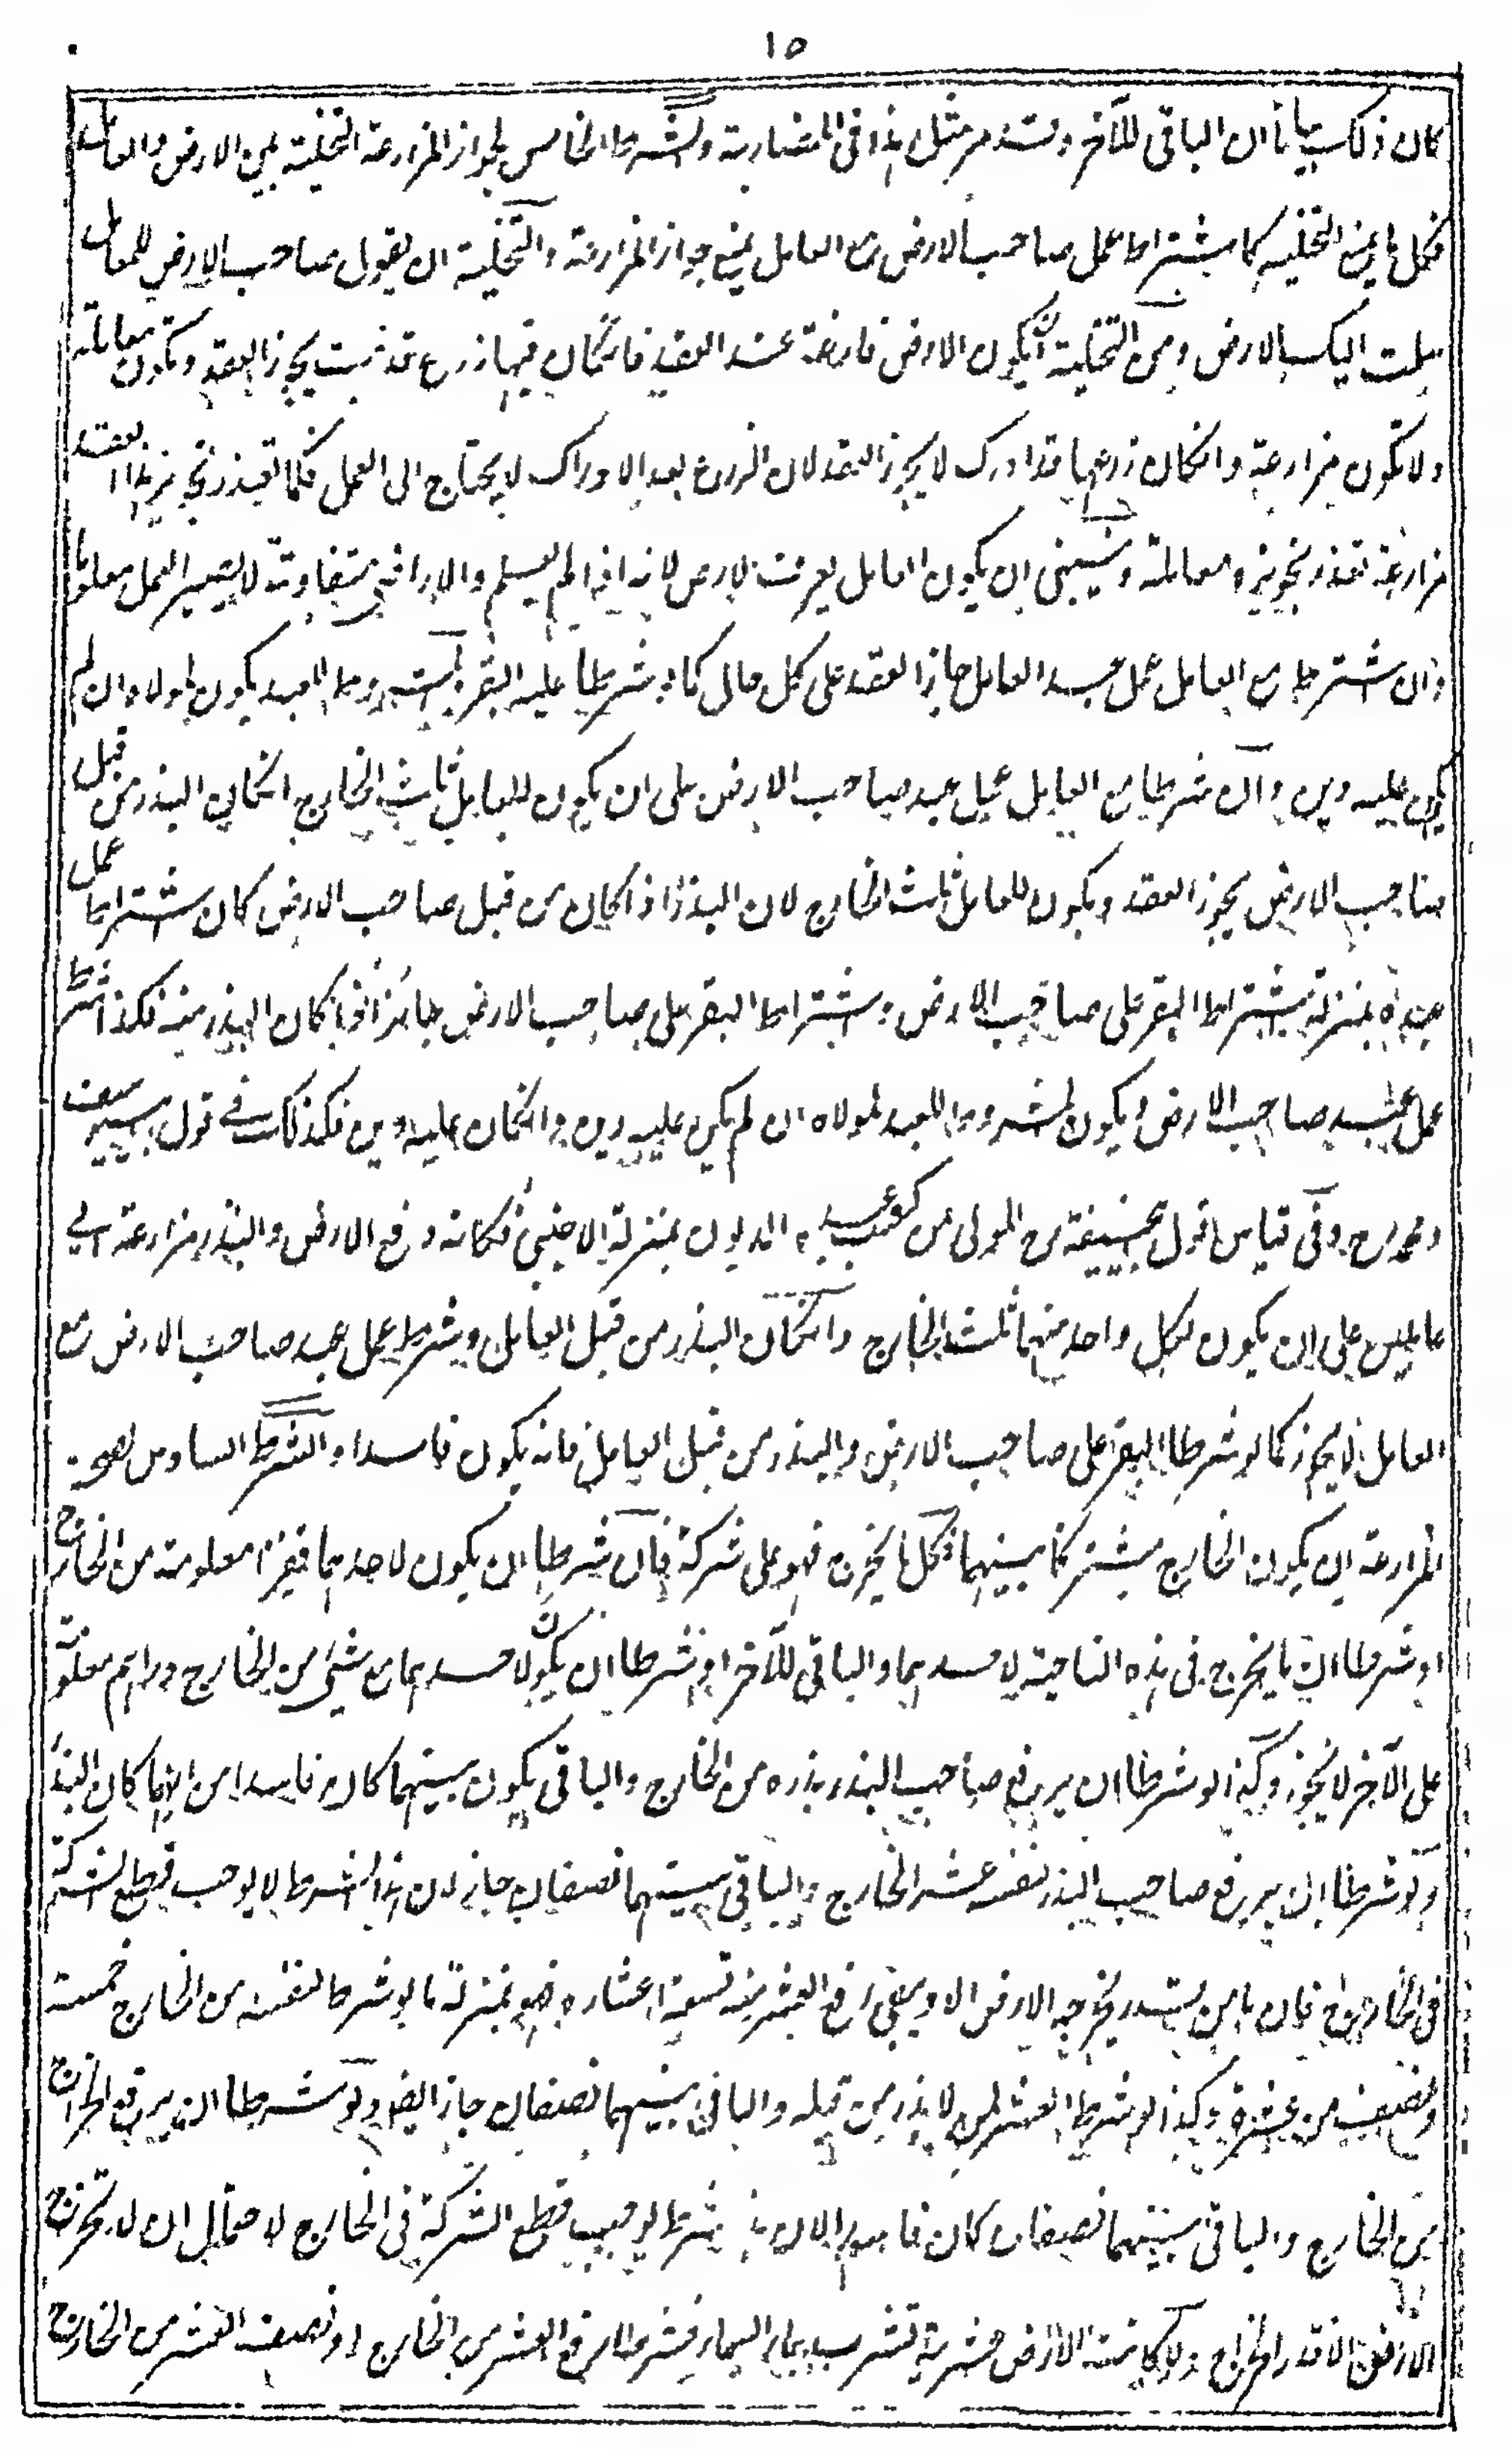 ١٥
كان ذلك بيانا ان الباقى للآخر وقد مر مثل هذا فى المضاربة والشرط الخامس لجواز المزارعة التخلية بين الارض والعامل
فكل ما يمنع التخلية كاشتراط عمل صاحب الارض مع العامل يمنع جواز المزارعة والتخلية ان يقول صاحب الارض للعامل
سلمت اليك الارض ومن التخلية ان يكون الارض فارغة عند العقد فان كان فيها زرع قد نبت يجوز العقد ويكون معاملة
ولا يكون مزارعة وانكان زرعها قد ادرك لا يجوز العقد لان الزرع بعد الادراك لا يحتاج الى العمل فكما تعذر تجويز هذا العقد
مزارعة تعذر تجويزه معاملة وينبغى ان يكون العامل يعرف الارض لانه اذا لم يعلم والاراضى متفاوتة لا يصير العمل معلوما
وان اشترط مع العامل عمل عبد العامل جاز العقد على كل حال كما لو شرطا عليه البقر المشروط للعبد يكون لمولاه ان لم
يكن عليه دين وان شرطا مع العامل عمل عبد صاحب الارض على ان يكون للعامل ثلث الخارج انكان البذر من قبل
صاحب الارض يجوز العقد ويكون للعامل ثلث الخارج لان البذر اذا كان من قبل صاحب الارض كان اشتراط عمل
عبده بمنزلة اشتراط البقر على صاحب الارض واشتراط البقر على صاحب الارض جائز اذا كان البذر منه فكذا شرط
عمل عبد صاحب الارض ويكون المشروط للعبد لمولاه ان لم يكن عليه دين وانكان عليه دين فكذلك فى قول ابيوسف
ومحمد رح وفى قياس قول ابيحنيفة رح المولى من كسب عبده المديون بمنزلة الاجنبى فكانه دفع الارض والبذر مزارعة الى
عاملين على ان يكون لكل واحد منهما ثلث الخارج وانكان البذر من قبل العامل وشرط عمل عبد صاحب الارض مع
العامل لا يجوز كما لو شرطا البقر على صاحب الارض والبذر من قبل العامل فانه يكون فاسدا والشرط السادس لصحة
المزارعة ان يكون الخارج مشتركا بينهما فكل ما يخرج فهو على شركة فان شرطا ان يكون لاحدهما قفيزا معلومة من الخارج
او شرطا ان ما يخرج فى هذه الناحية لاحدهما والباقى للآخر او شرطا ان يكون لاحدهما مع شئ من الخارج دراهم معلومة
على الآخر لا يجوز وكذا لو شرطا ان يرفع صاحب البذر بذره من الخارج والباقى يكون بينهما كان فاسدا من ايهما كان البذر
ولو شرطا ان يرفع صاحب البذر لنفسه عشر الخارج والباقى بينهما نصفان جاز لان هذا الشرط لا يوجب قطع الشركة
فى الخارج فان ما من قدر يخرجه الارض الا ويبقى بعد رفع العشر منه تسعة اعشاره فهو بمنزلة ما لو شرط لنفسه من الخارج خمسة
ونصف من عشرة وكذا لو شرط العشر لمن لا بذر من قبله والباقى بينهما نصفان جاز ايضا ولو شرطا ان يرفع الخراج
من الخارج والباقى بينهما نصفان كان فاسدا لان هذا شرط يوجب قطع الشركة فى الخارج لاحتمال ان لا تخرج
الارض الا قدر الخراج ولو كانت الارض عشرية تشرب بماء السماء فشرطا رفع العشر من الخارج او نصف العشر من الخارج